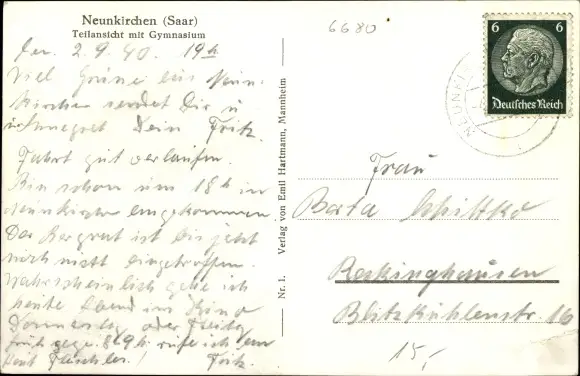 Neunkirchen (Saar)
Teilansicht mit Gymnasium
den 2.9.40. 19h
Viel Grüße aus Neun-
kirchen sendet Dir u
Dein Fritz.
Fahrt gut verlaufen.
Bin schon um 18h in
Neunkirchen angekommen
Der Bergrat ist bis jetzt
noch nicht eingetroffen.
Wahrscheinlich gehe ich
heute Abend ins Kino
Donnerstag oder Freitag
früh gege. 8-9h rufe ich
Fritz.
Nr. 1. Verlag von Emil Hartmann, Mannheim
6680
6 6
Deutsches Reich
Frau
Berta Schittko
Recklinghausen
Blitzkuhlenstr. 16
15,-